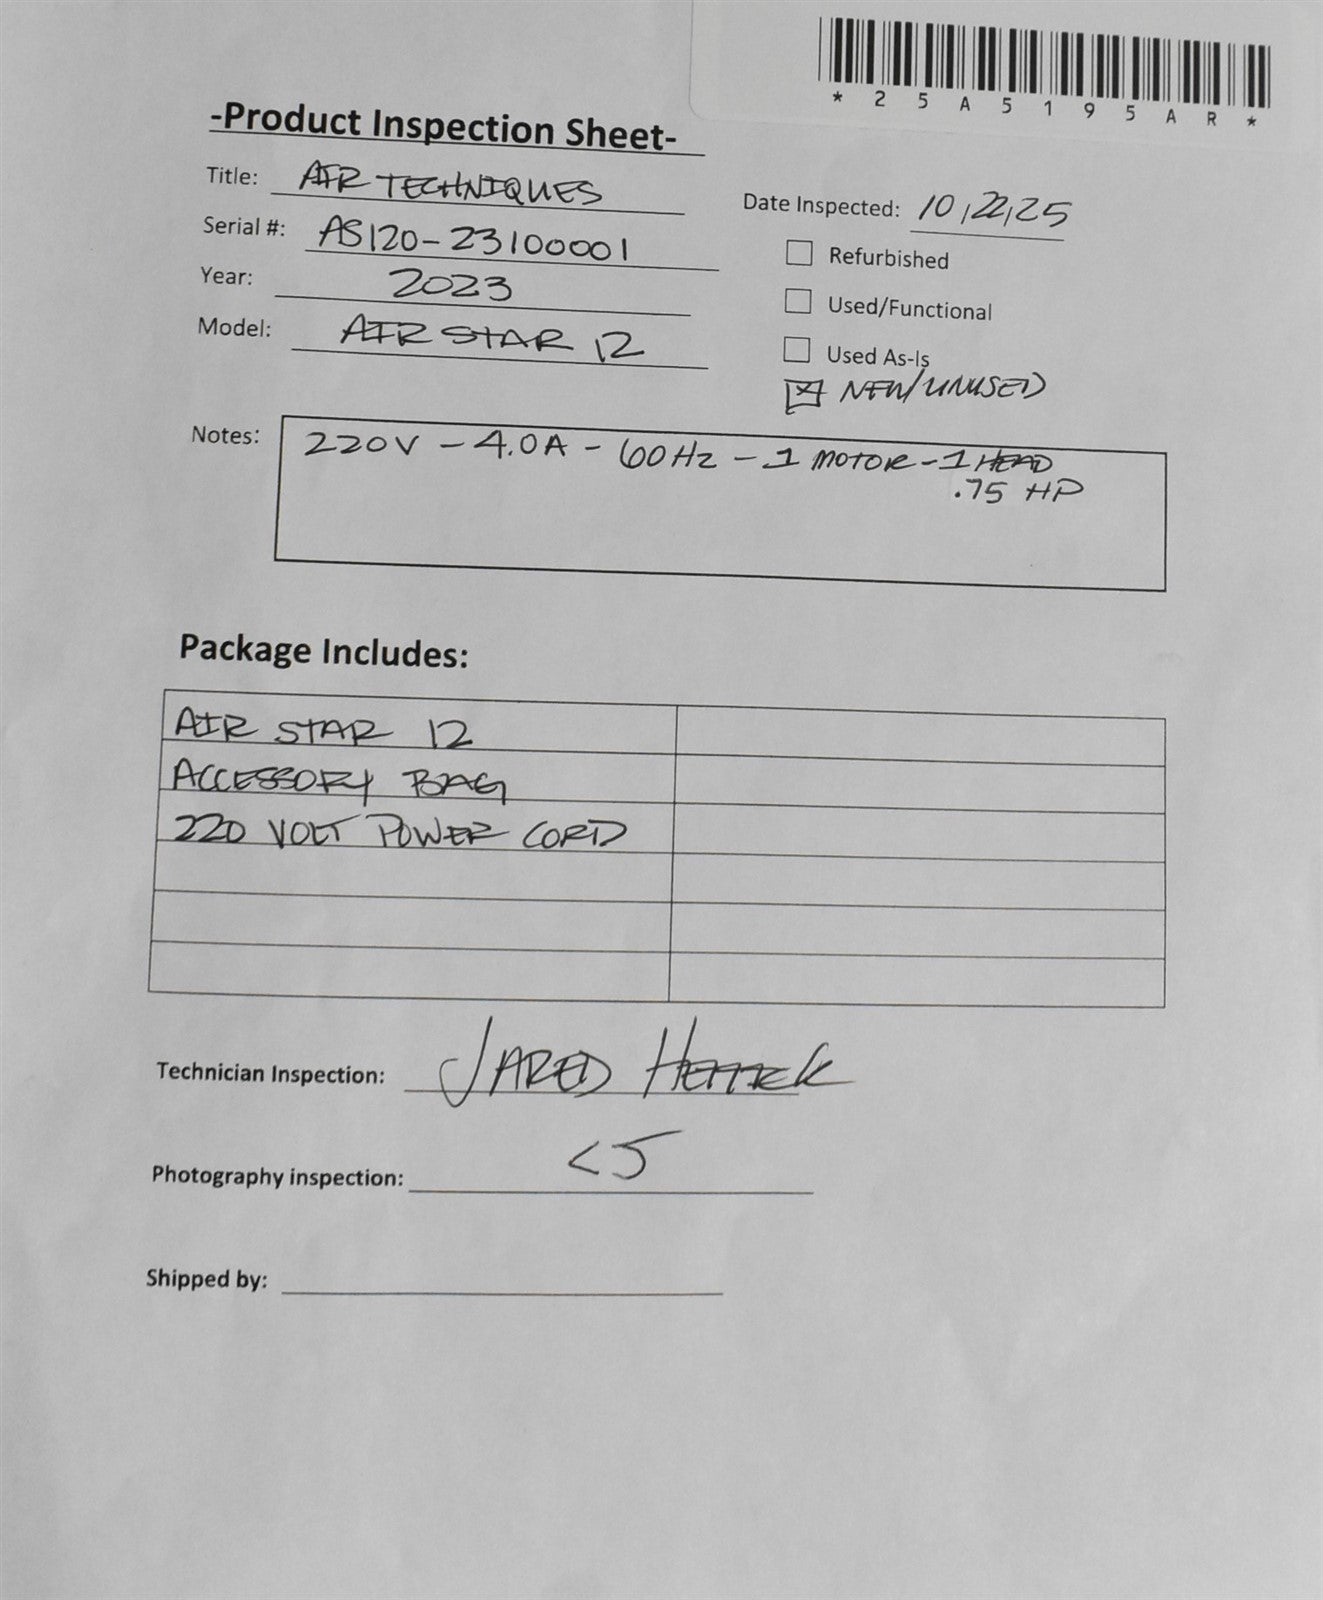 *25A5195AR*
-Product Inspection Sheet-
Title: AIR TECHNIQUES
Date Inspected: 10,22,25
Serial #: AS120-23100001
Refurbished
Year: 2023
Used/Functional
Model: AIR STAR 12
Used As-Is
NEW/UNUSED
Notes: 220V - 4.0A - 60Hz - 1 MOTOR - 1 HEAD
.75 HP
Package Includes:
AIR STAR 12
ACCESSORY BAG
220 VOLT POWER CORD
Technician Inspection: JARED
Photography inspection:
Shipped by: